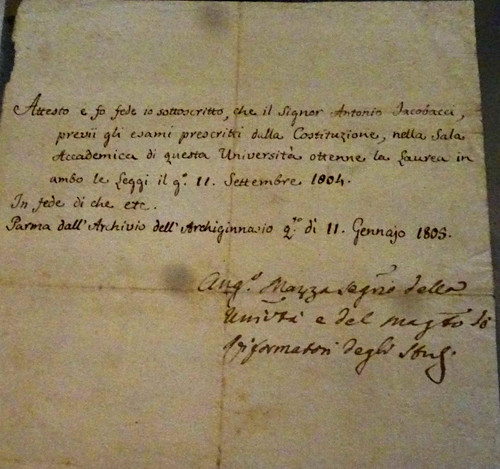 Attesto e fo fede io sottoscritto, che il Signor Antonio Jacobacci,
previi gli esami prescritti dalla Costituzione, nella Sala
Accademica di questa Università ottenne la Laurea in
ambo le Leggi il gº. 11. Settembre 1804.
In fede di che etc.
Parma dall'Archivio dell'Archiginnasio qº dì 11. Gennajo 1805.
Angº. Mazza Segrio della
Unità e del Magto de
Riformatori degli Studj